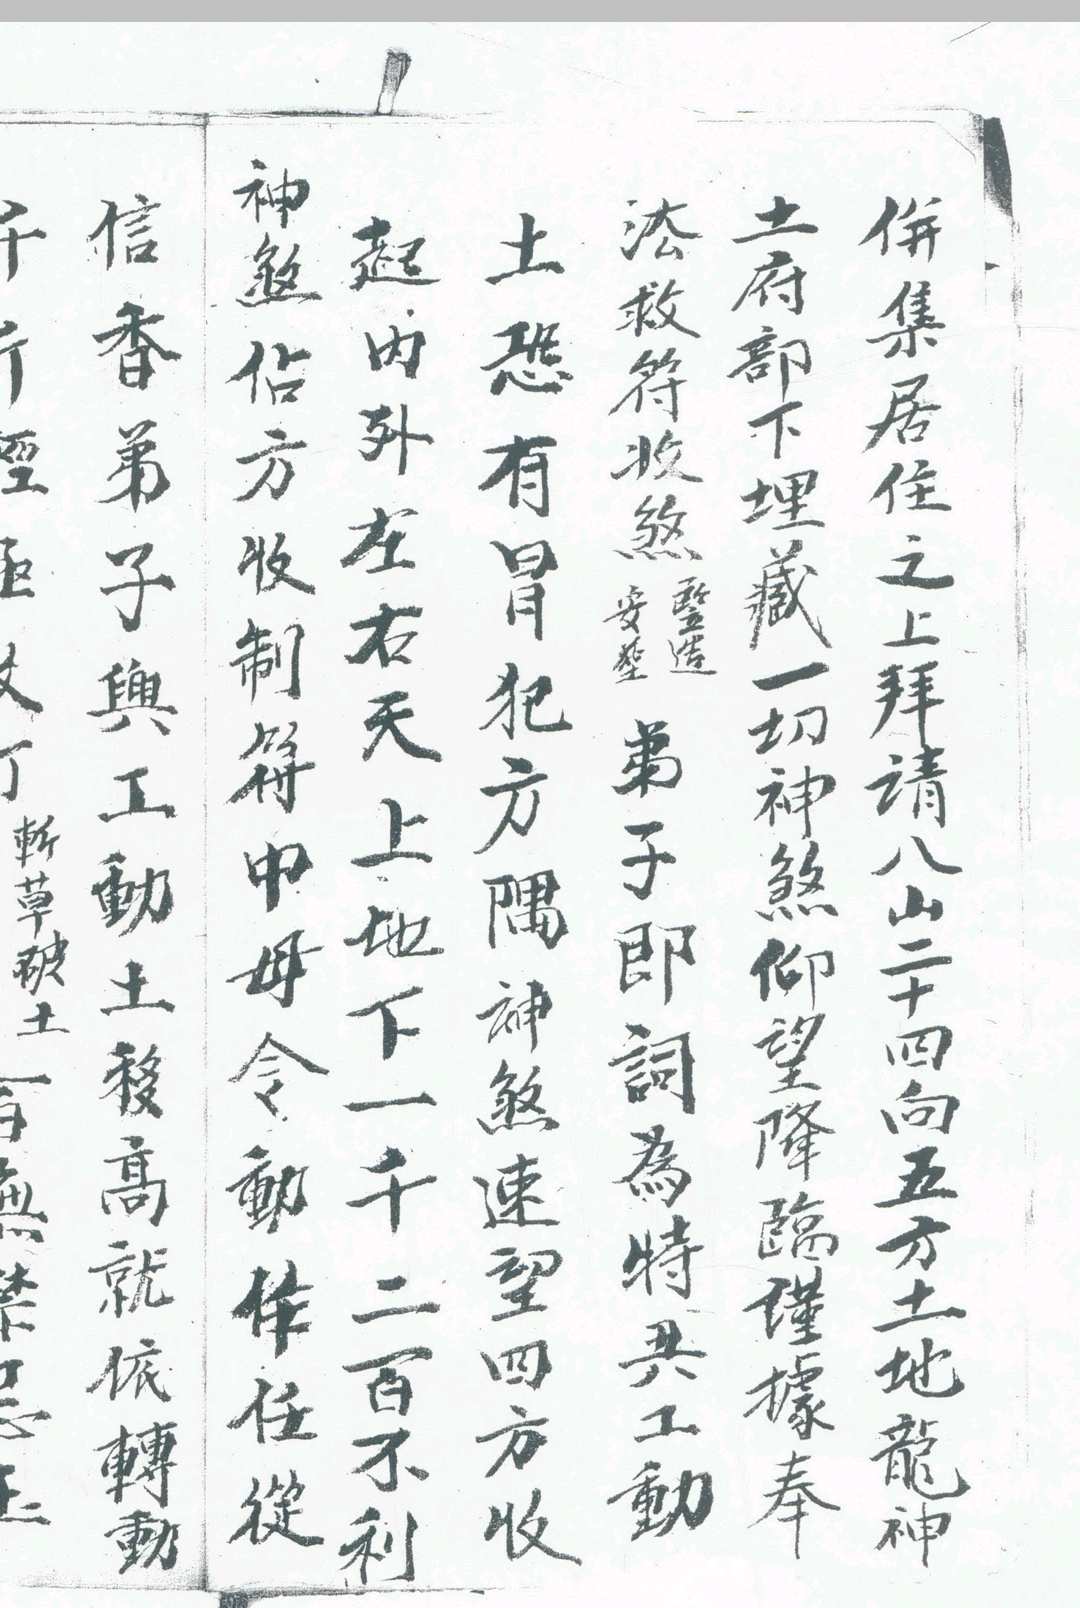 併集居住之上拜請八山二十四向五方土地龍神
土府部下埋藏一切神煞仰望降臨謹據奉
法救符收煞竪造安塋弟子即詞為特興工動
土恐有冒犯方隅神煞速望四方收
起內外左右天上地下一千二百不利
神煞佔方收制符中毋令動作任從
信香弟子興工動土移高就依轉動
斬草破土百無禁忌